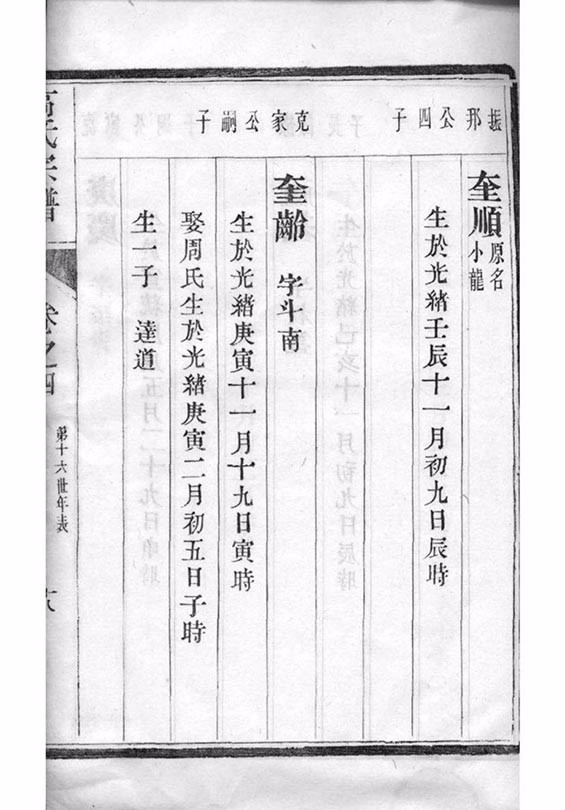 振邦公四子
奎順 原名小龍
生於光緒壬辰十一月初九日辰時
克家公嗣子
奎齡 字斗南
生於光緒庚寅十一月十九日寅時
娶周氏生於光緒庚寅二月初五日子時
生一子 達道
氏宗譜
卷之四
第十六世年表